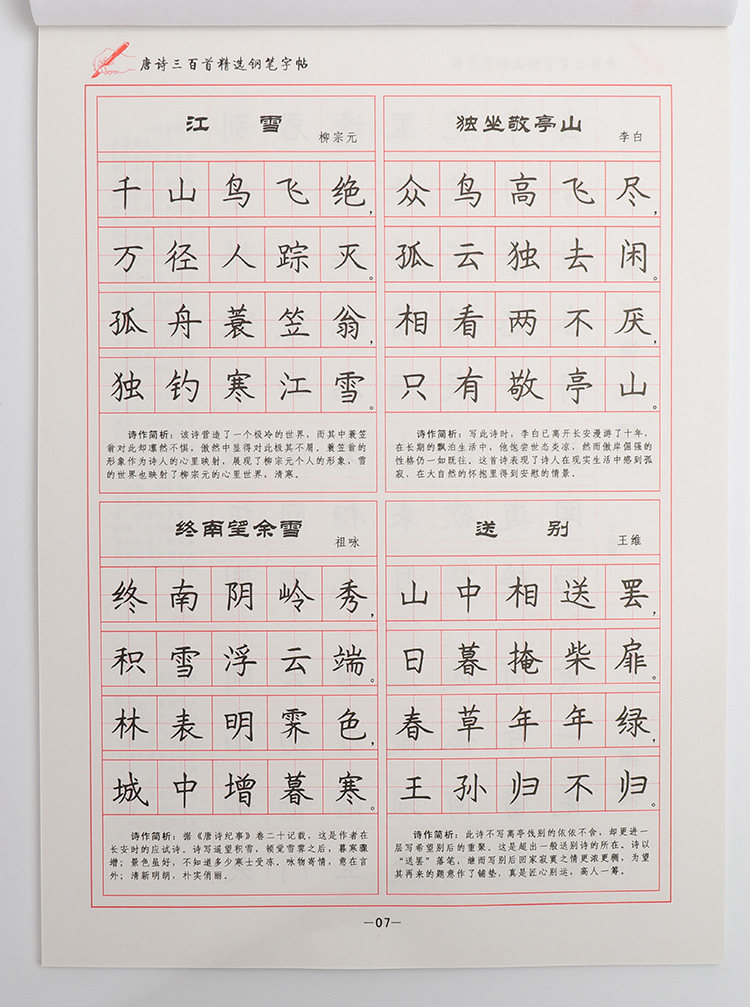 唐诗三百首精选钢笔字帖
江 雪
柳宗元
千山鸟飞绝,
万径人踪灭。
孤舟蓑笠翁,
独钓寒江雪。
诗作简析:该诗营造了一个极冷的世界,而其中蓑笠
翁对此却凛然不惧,傲然中显得对此极其不屑。蓑笠翁的
形象作为诗人的心里映射,展现了柳宗元个人的形象,雪
的世界也映射了柳宗元的心里世界,清寒。
独坐敬亭山
李白
众鸟高飞尽,
孤云独去闲。
相看两不厌,
只有敬亭山。
诗作简析:写此诗时,李白已离开长安漫游了十年,
在长期的飘泊生活中,他饱尝世态炎凉,然而傲岸倔强的
性格仍一如既往。这首诗表现了诗人在现实生活中感到孤
寂,在大自然的怀抱里得到安慰的情景。
终南望余雪
祖咏
终南阴岭秀,
积雪浮云端。
林表明霁色,
城中增暮寒。
诗作简析:据《唐诗纪事》卷二十记载,这是作者在
长安时的应试诗。诗写遥望积雪,顿觉雪霁之后,暮寒骤
增;景色虽好,不知道多少寒士受冻。咏物寄情,意在言
外;清新明朗,朴实俏丽。
送 别
王维
山中相送罢,
日暮掩柴扉。
春草年年绿,
王孙归不归。
诗作简析:此诗不写离亭饯别的依依不舍,却更进一
层写希望别后的重聚。这是超出一般送别诗的所在。诗以
“送罢”落笔,继而写别后回家寂寞之情更浓更稠,为望
其再来的题意作了铺垫,真是匠心别运,高人一筹。
—07—